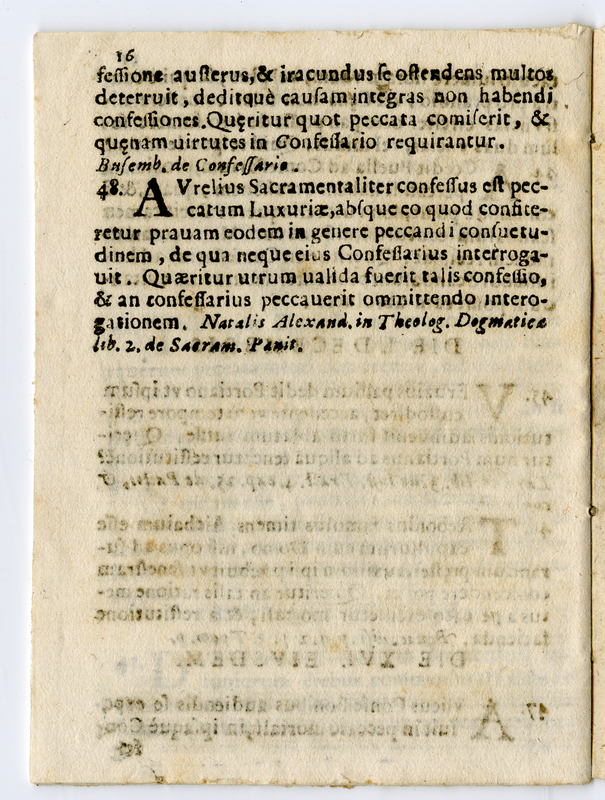 16
feſſione auſterus, & iracundus ſe oſtendens multos
deterruit, deditquè cauſam integras non habendi
confeſſiones. Quęritur quot peccata comiſerit, &
quęnam uirtutes in Confeſſario requirantur.
Buſemb. de Confeſſario.
48. AVrelius Sacramentaliter confeſſus eſt pec-
catum Luxuriæ, abſque eo quod confite-
retur prauam eodem in genere peccandi conſuetu-
dinem, de qua neque eius Confeſſarius interroga-
uit.. Quæritur utrum ualida fuerit talis confeſſio,
& an confeſſarius peccauerit ommittendo intero-
gationem. Natalis Alexand. in Theolog. Dogmatica
lib. 2. de Sacram. Pænit.